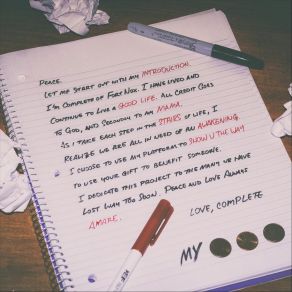 Peace.
Let me start out with my introduction.
I'm Complete of Fort Nox. I have lived and
continue to live a good life. All credit goes
to God, and secondly to my mama.
As I take each step in the stairs of life, I
realize we are all in need of an awakening.
I choose to use my platform to show u the way
to use your gift to benefit someone.
I dedicate this project to the many we have
lost way too soon. Peace and Love Always
Amare.
Love, Complete
My